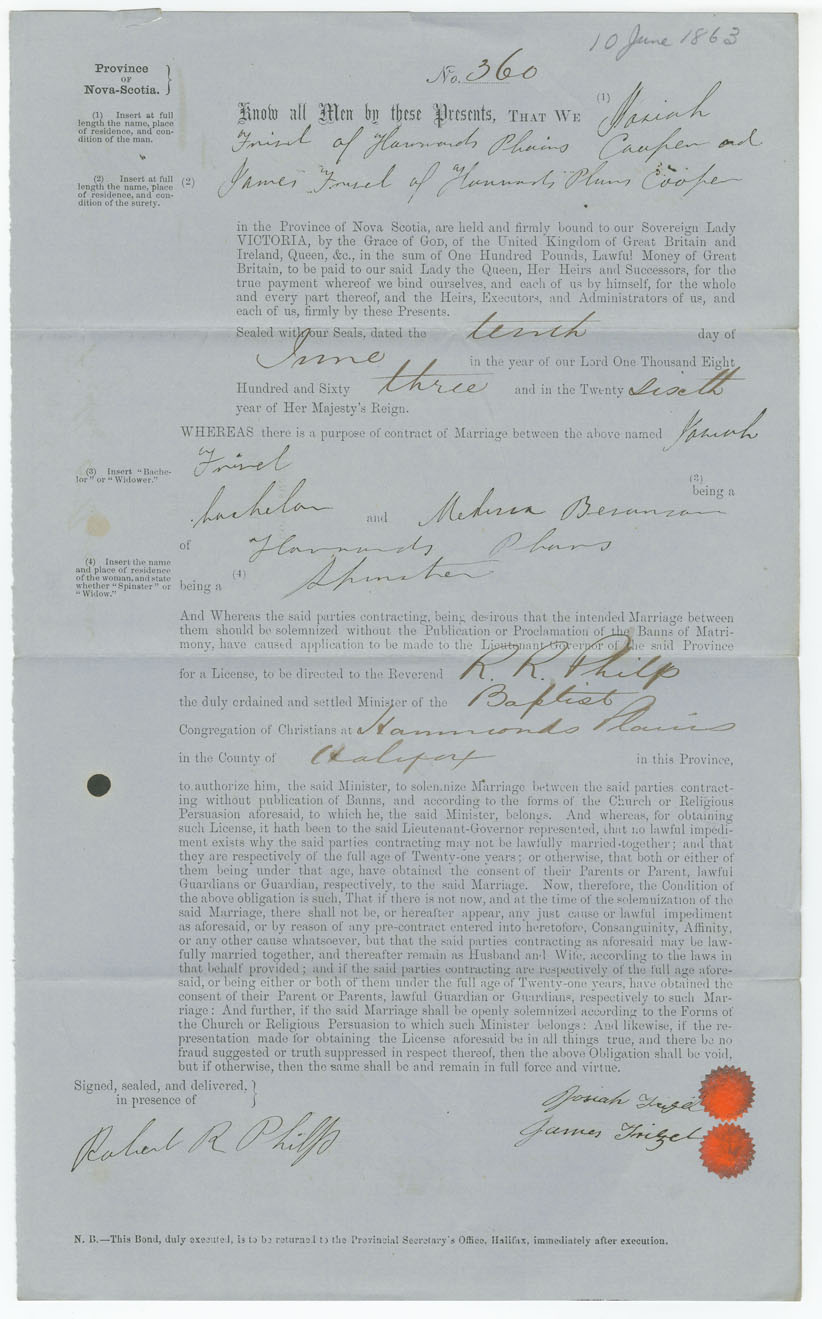 10 June 1863
Province
OF
Nova-Scotia.
No. 360
(1) Insert at full
length the name, place
of residence, and con-
dition of the man.
Know all Men by these Presents, THAT WE (1) Josiah
Frisel of Hammonds Plains Cooper and
(2) Insert at full
length the name, place
of residence, and con-
dition of the surety.
(2) James Frisel of Hammonds Plains Cooper
in the Province of Nova Scotia, are held and firmly bound to our Sovereign Lady
VICTORIA, by the Grace of GOD, of the United Kingdom of Great Britain and
Ireland, Queen, &c., in the sum of One Hundred Pounds, Lawful Money of Great
Britain, to be paid to our said Lady the Queen, Her Heirs and Successors, for the
true payment whereof we bind ourselves, and each of us by himself, for the whole
and every part thereof, and the Heirs, Executors, and Administrators of us, and
each of us, firmly by these Presents.
Sealed with our Seals, dated the tenth day of
June in the year of our Lord One Thousand Eight
Hundred and Sixty three and in the Twenty sixth
year of Her Majesty's Reign.
WHEREAS there is a purpose of contract of Marriage between the above named Josiah
Frisel
(3) Insert "Bache-
lor" or "Widower."
(3)
being a
bachelor and Besanson
of Hammonds Plains
(4) Insert the name
and place of residence
of the woman, and state
whether "Spinster" or
"Widow."
being a (4) Spinster
And Whereas the said parties contracting, being desirous that the intended Marriage between
them should be solemnized without the Publication or Proclamation of the Banns of Matri-
mony, have caused application to be made to the Lieutenant-Governor of the said Province
for a License, to be directed to the Reverend R. R. Philp
the duly ordained and settled Minister of the Baptist
Congregation of Christians at Hammonds Plains
in the County of Halifax in this Province,
to authorize him, the said Minister, to solemnize Marriage between the said parties contract-
ing without publication of Banns, and according to the forms of the Church or Religious
Persuasion aforesaid, to which he, the said Minister, belongs. And whereas, for obtaining
such License, it hath been to the said Lieutenant-Governor represented, that no lawful impedi-
ment exists why the said parties contracting may not be lawfully married together; and that
they are respectively of the full age of Twenty-one years; or otherwise, that both or either of
them being under that age, have obtained the consent of their Parents or Parent, lawful
Guardians or Guardian, respectively, to the said Marriage. Now, therefore, the Condition of
the above obligation is such, That if there is not now, and at the time of the solemnization of the
said Marriage, there shall not be, or hereafter appear, any just cause or lawful impediment
as aforesaid, or by reason of any pre-contract entered into heretofore, Consanguinity, Affinity,
or any other cause whatsoever, but that the said parties contracting as aforesaid may be law-
fully married together, and thereafter remain as Husband and Wife, according to the laws in
that behalf provided; and if the said parties contracting are respectively of the full age afore-
said, or being either or both of them under the full age of Twenty-one years, have obtained the
consent of their Parent or Parents, lawful Guardian or Guardians, respectively to such Mar-
riage: And further, if the said Marriage shall be openly solemnized according to the Forms of
the Church or Religious Persuasion to which such Minister belongs: And likewise, if the re-
presentation made for obtaining the License aforesaid be in all things true, and there be no
fraud suggested or truth suppressed in respect thereof, then the above Obligation shall be void,
but if otherwise, then the same shall be and remain in full force and virtue.
Signed, sealed, and delivered,
in presence of
Josiah
James Frizel
Robert R Philp
N. B.—This Bond, duly executed, is to be returned to the Provincial Secretary's Office, Halifax, immediately after execution.